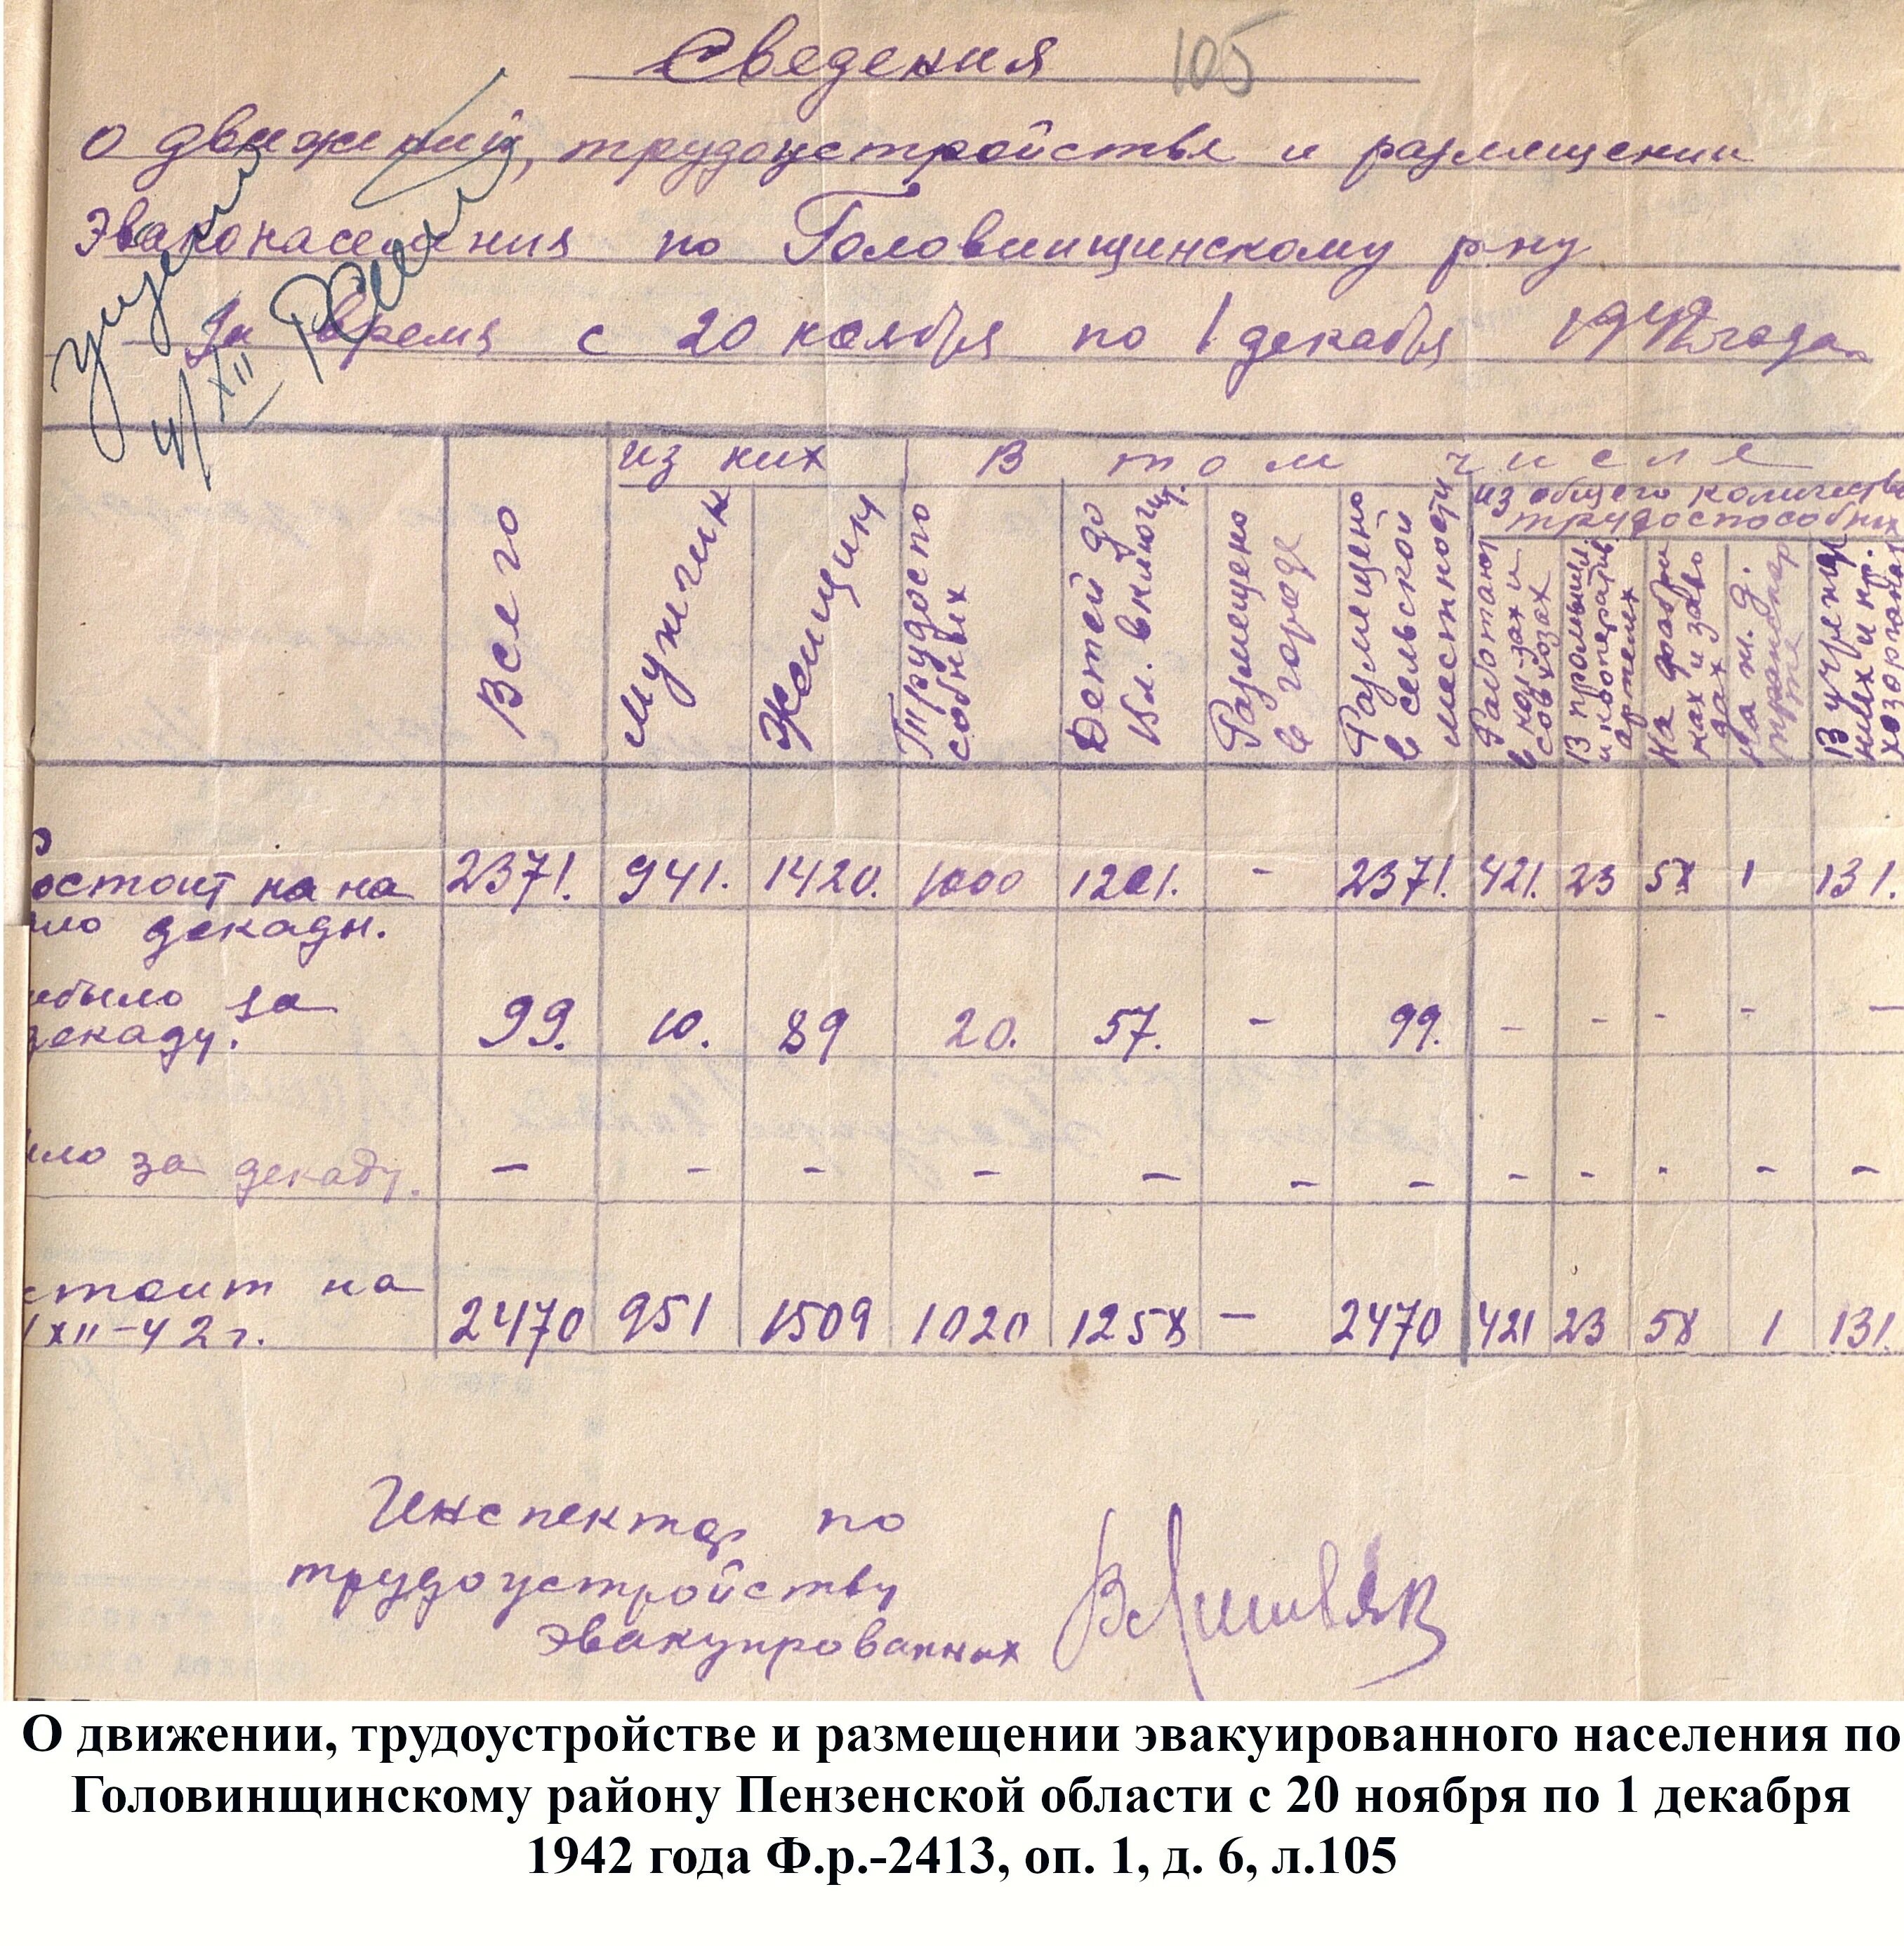 Сведения 105
о движений, трудоустройстве и размещении
Эваконаселения по Головинщинскому р-ну
За время с 20 ноября по 1 декабря 1942 года
4/XII
из них В том числе
Всего
Мужчин
Женщин
Трудоспо
собных
Детей до
15 л. включ.
Размещено
в городе
Размещено
в сельской
местности
из общего количества
трудоспособных
Работают
в кол-зах и
совхозах
В промышл.
и кооператив.
артелях
На фабри
ках и заво
дах
На ж. д.
транспор
те
В учрежде
ниях и пр.
хозорганах
остоит на на
ло декады. 2371. 941. 1420. 1000 1201. - 2371. 421. 23 58 1 131.
ибыло за
декаду. 99. 10. 89 20. 57. - 99. - - - - -
ыло за декаду. - - - - - - - - - - - -
стоит на
1 XII-42 г. 2470 951 1509 1020 1258 - 2470 421 23 58 1 131.
Инспектор по
трудоустройству
эвакуированных
О движении, трудоустройстве и размещении эвакуированного населения по
Головинщинскому району Пензенской области с 20 ноября по 1 декабря
1942 года Ф.р.-2413, оп. 1, д. 6, л.105